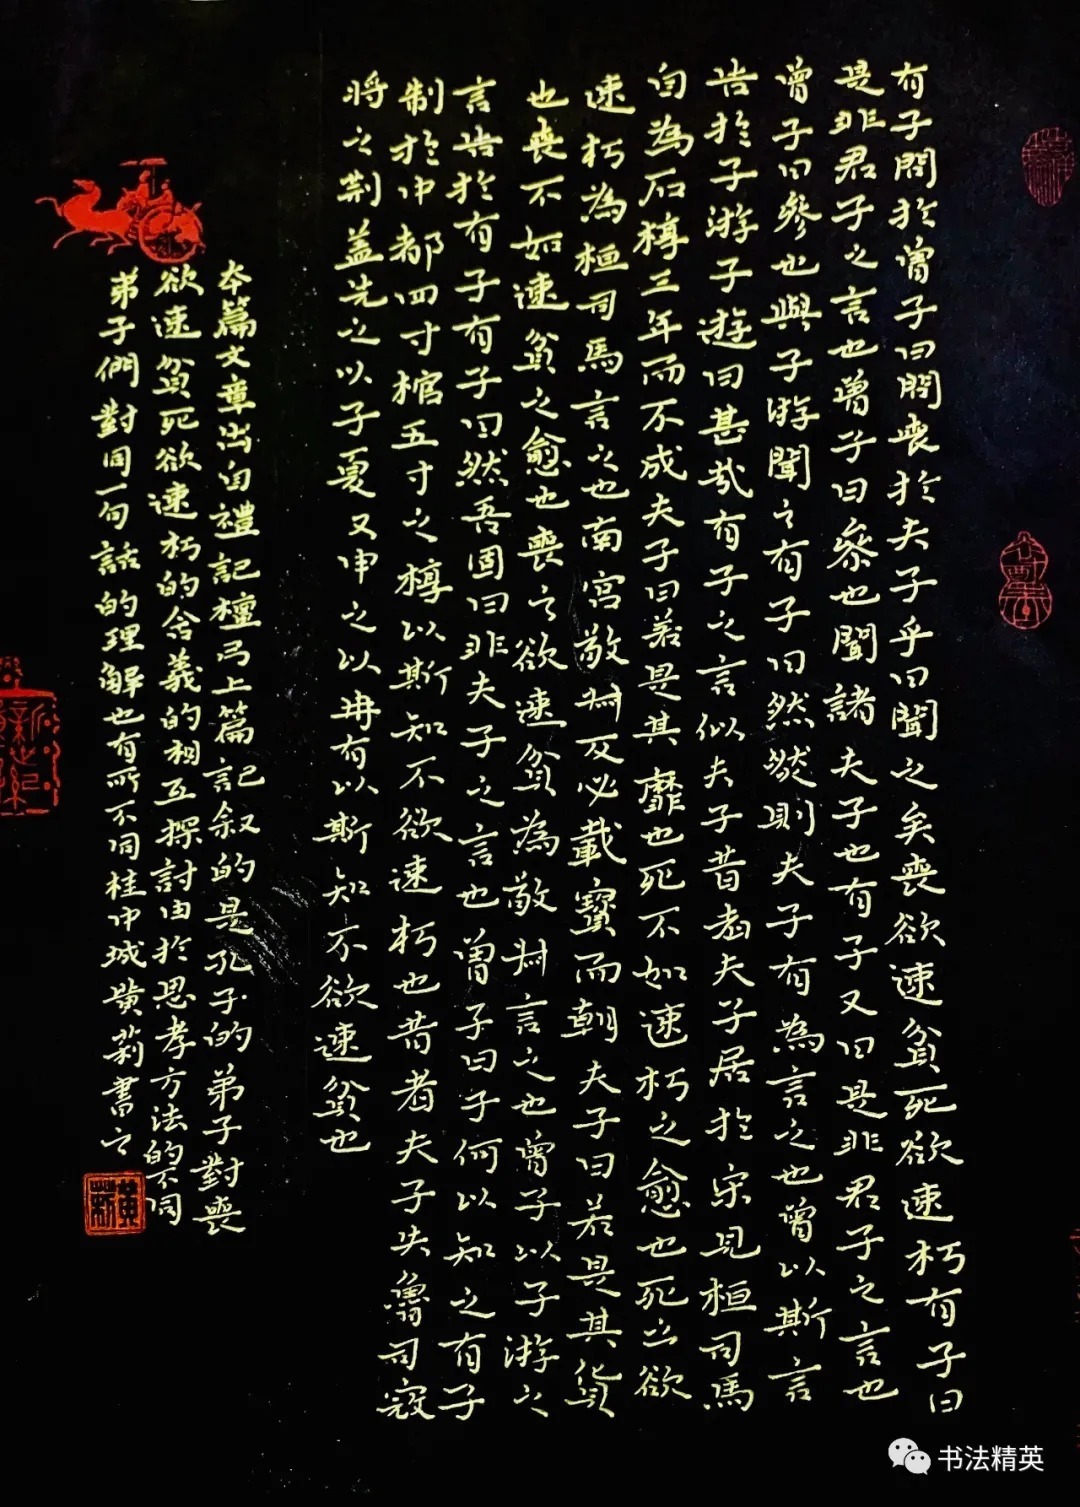 有子問於曾子曰問喪於夫子乎曰聞之矣喪欲速貧死欲速朽有子曰
是非君子之言也曾子曰參也聞諸夫子也有子又曰是非君子之言也
曾子曰參也與子游聞之有子曰然然則夫子有為言之也曾以斯言
告於子游子遊曰甚哉有子之言似夫子昔者夫子居於宋見桓司馬
自為石椁三年而不成夫子曰若是其靡也死不如速朽之愈也死之欲
速朽為桓司馬言之也南宮敬叔反必載寶而朝夫子曰若是其貨
也喪不如速貧之愈也喪之欲速貧為敬叔言之也曾子以子游之
言告於有子有子曰然吾固曰非夫子之言也曾子曰子何以知之有子
制於中都四寸棺五寸之椁以斯知不欲速朽也昔者夫子失魯司寇
將之荆蓋先之以子夏又申之以冉有以斯知不欲速貧也
本篇文章出自禮記檀弓上篇記叙的是孔子的弟子對喪
欲速貧死欲速朽的含義的相互探討由於思考方法的不同
弟子們對同一句話的理解也有所不同桂中城黄莉書之
书法精英